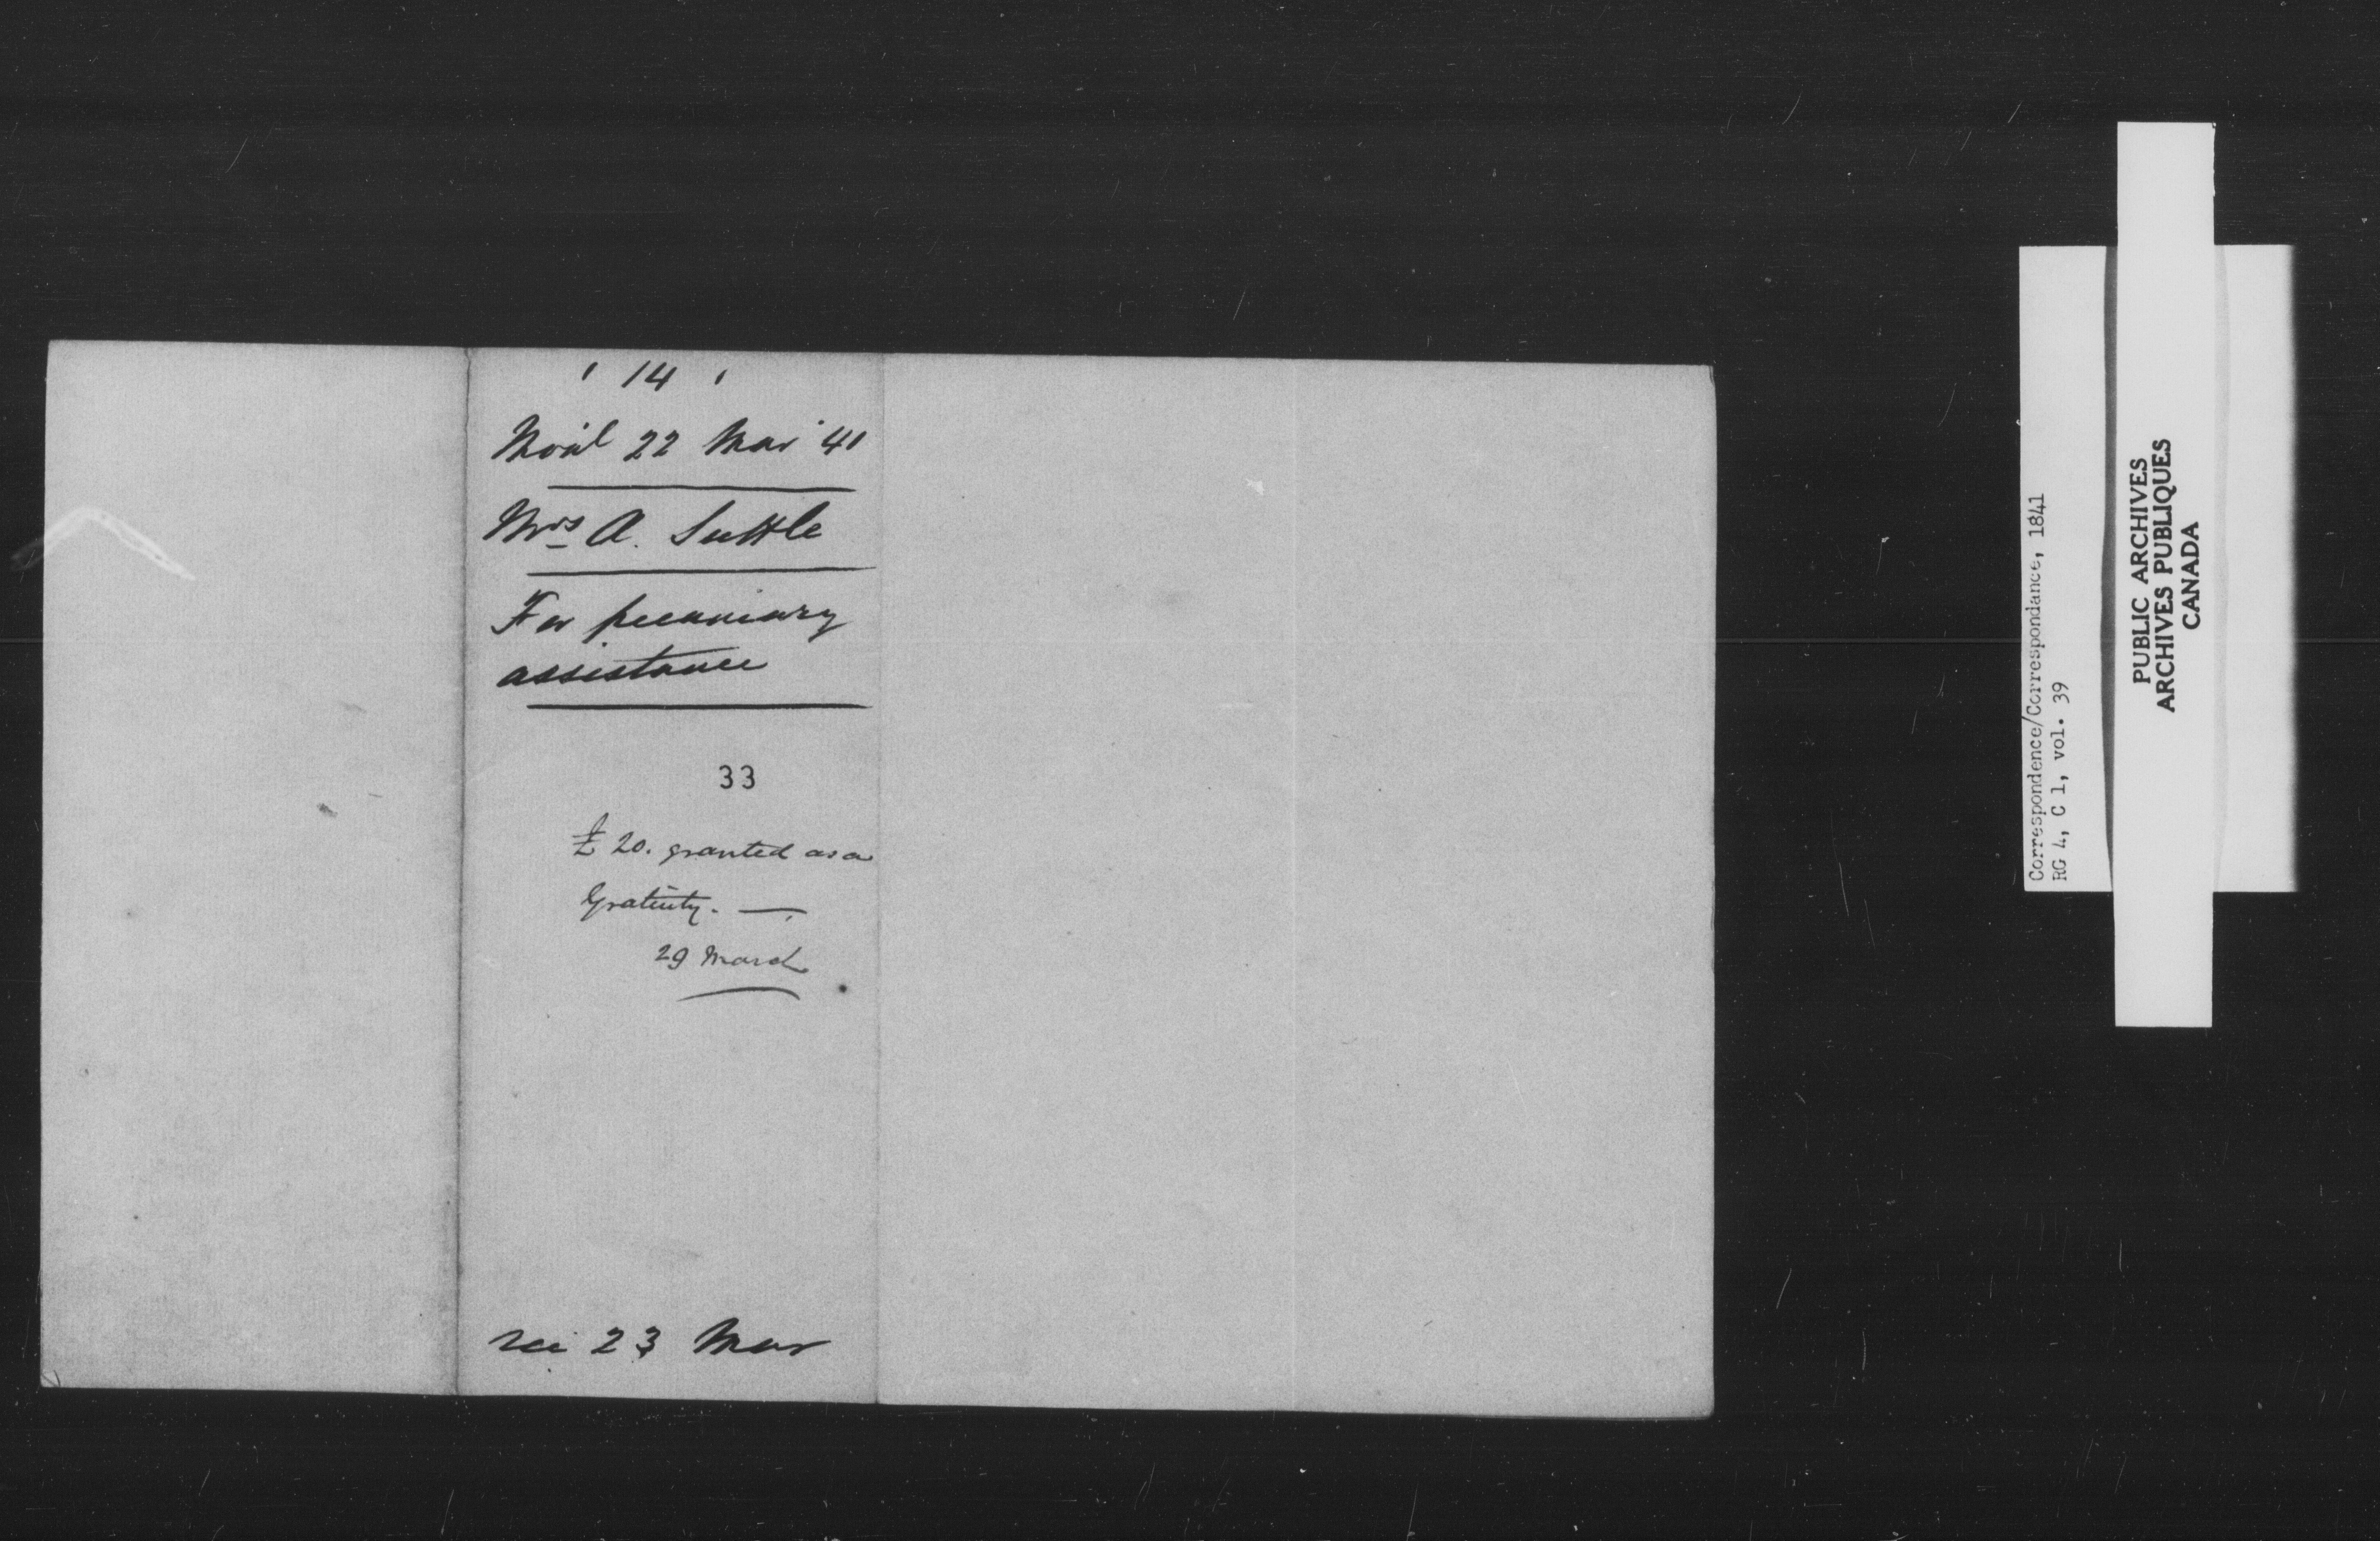 ' 14 '
Mo'al 22 Mar '41
Mrs A. Suttle
For pecuniary
assistance
33
£ 20. granted as a
Gratuity. —
29 March
rec 23 Mar
Correspondence/Correspondance, 1841
RG 4, C 1, vol. 39
PUBLIC ARCHIVES
ARCHIVES PUBLIQUES
CANADA